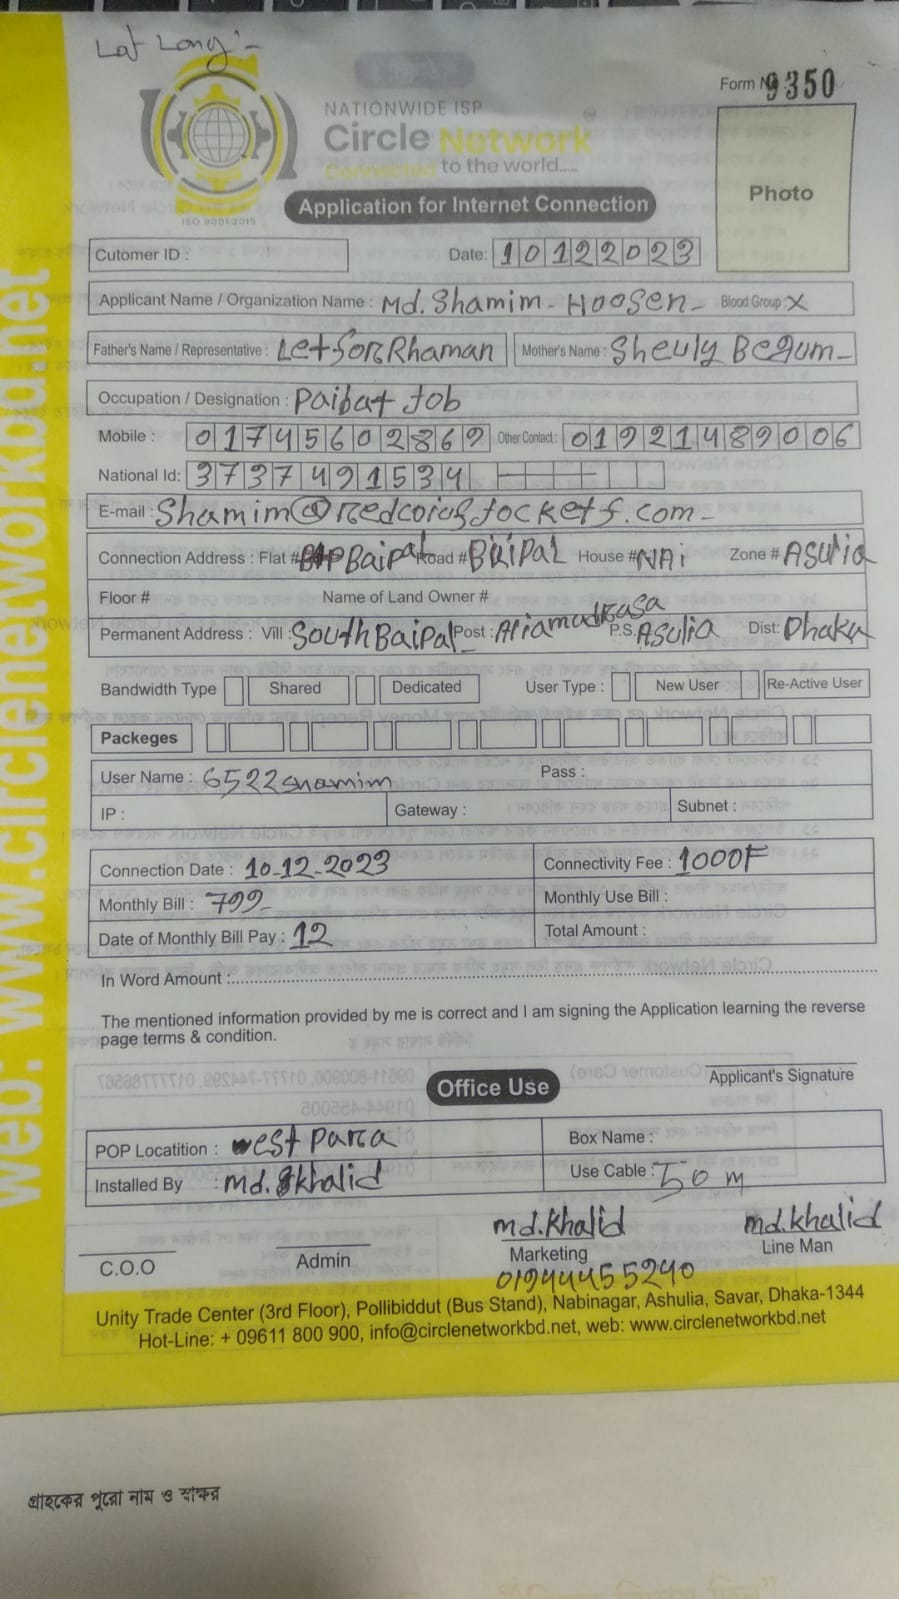 Lat Long:-
Form No 9350
NATIONWIDE ISP
Circle Network
Connected to the world.....
ISO 9001:2015
Photo
Application for Internet Connection
Cutomer ID :
Date: 10122023
Applicant Name / Organization Name : Md. Shamim - Hoosen - Blood Group : X
Father's Name / Representative : LetforRhaman Mother's Name : Sheuly Begum -
Occupation / Designation : Paibat Job
Mobile : 01745602869 Other Contact : 01921489006
National Id: 3737491534
E-mail : Shamim@redcoius Jockets.com -
Connection Address : Flat # Baipal Road # Bripal House # NAi Zone # Asulia
Floor # Name of Land Owner #
Permanent Address : Vill : South Baipal Post : Aliamadrasa P.S. Asulia Dist: Dhaka
Bandwidth Type Shared Dedicated User Type : New User Re-Active User
Packeges
User Name : 6522shamim Pass :
IP : Gateway : Subnet :
Connection Date : 10-12-2023 Connectivity Fee : 1000F
Monthly Bill : 799- Monthly Use Bill :
Date of Monthly Bill Pay : 12 Total Amount :
In Word Amount :
The mentioned information provided by me is correct and I am signing the Application learning the reverse
page terms & condition.
Applicant's Signature
Office Use
POP Locatition : west para Box Name :
Installed By : md. khalid Use Cable : 50 m
md.khalid md.khalid
C.O.O Admin Marketing Line Man
01944455240
Unity Trade Center (3rd Floor), Pollibiddut (Bus Stand), Nabinagar, Ashulia, Savar, Dhaka-1344
Hot-Line: + 09611 800 900, info@circlenetworkbd.net, web: www.circlenetworkbd.net
web: www.circlenetworkbd.net
গ্রাহকের পুরো নাম ও স্বাক্ষর